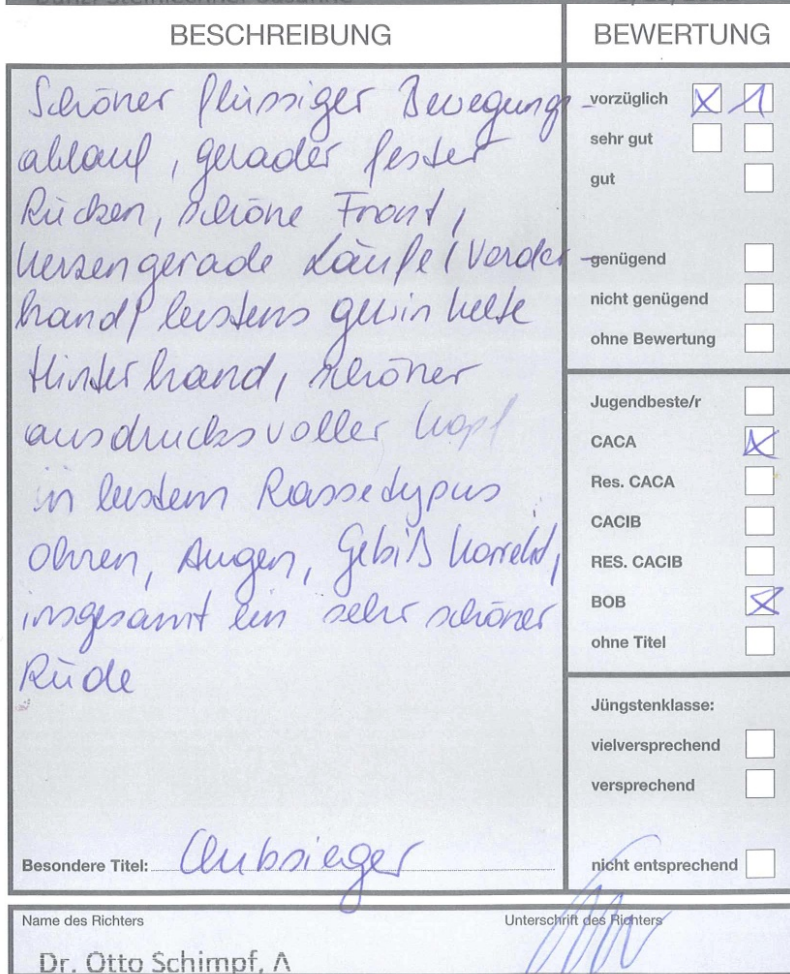 BESCHREIBUNG
Schöner flüssiger Bewegungs-
ablauf, gerader fester
Rücken, schöne Front,
kerzengerade Läufe (Vorder-
hand) bestens gewinkelte
Hinterhand, schöner
ausdrucksvoller Kopf
in bestem Rassetypus
Ohren, Augen, Gebiß korrekt,
insgesamt ein sehr schöner
Rüde
Besondere Titel: Clubsieger
BEWERTUNG
vorzüglich X 1
sehr gut
gut
genügend
nicht genügend
ohne Bewertung
Jugendbeste/r
CACA X
Res. CACA
CACIB
RES. CACIB
BOB X
ohne Titel
Jüngstenklasse:
vielversprechend
versprechend
nicht entsprechend
Name des Richters
Unterschrift des Richters
Dr. Otto Schimpf, A